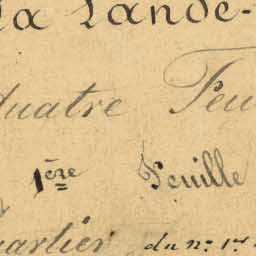 la Lande-
quatre Feu
1ère Feuille
uartier du n° 1er